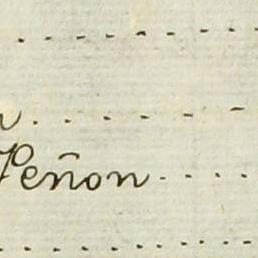 Peñon